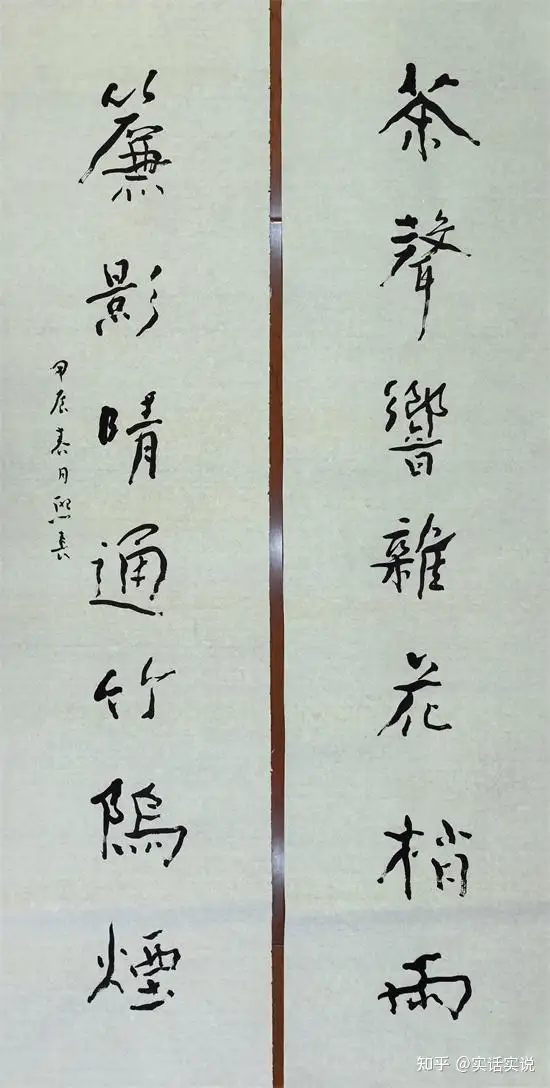 茶聲響雜花梢雨
簾影晴通竹隖煙
甲辰春月熙長
知乎 @实话实说